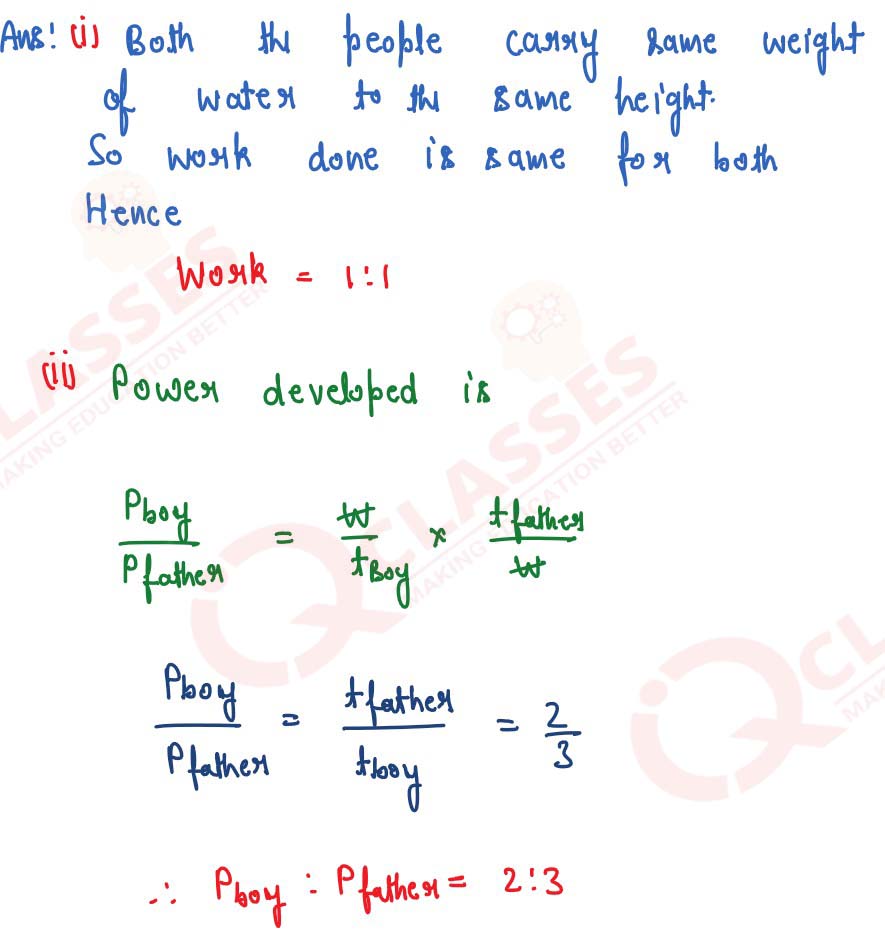 Ans! (i) Both the people carry same weight
of water to the same height.
So work done is same for both
Hence
Work = 1:1
(ii) Power developed is
Pboy/Pfather = W/tBoy × tfather/W
Pboy/Pfather = tfather/tboy = 2/3
∴ Pboy : Pfather = 2:3
CLASSES
MAKING EDUCATION BETTER
iQ CLASSES
MAKING EDUCATION BETTER
iQ CL
MA